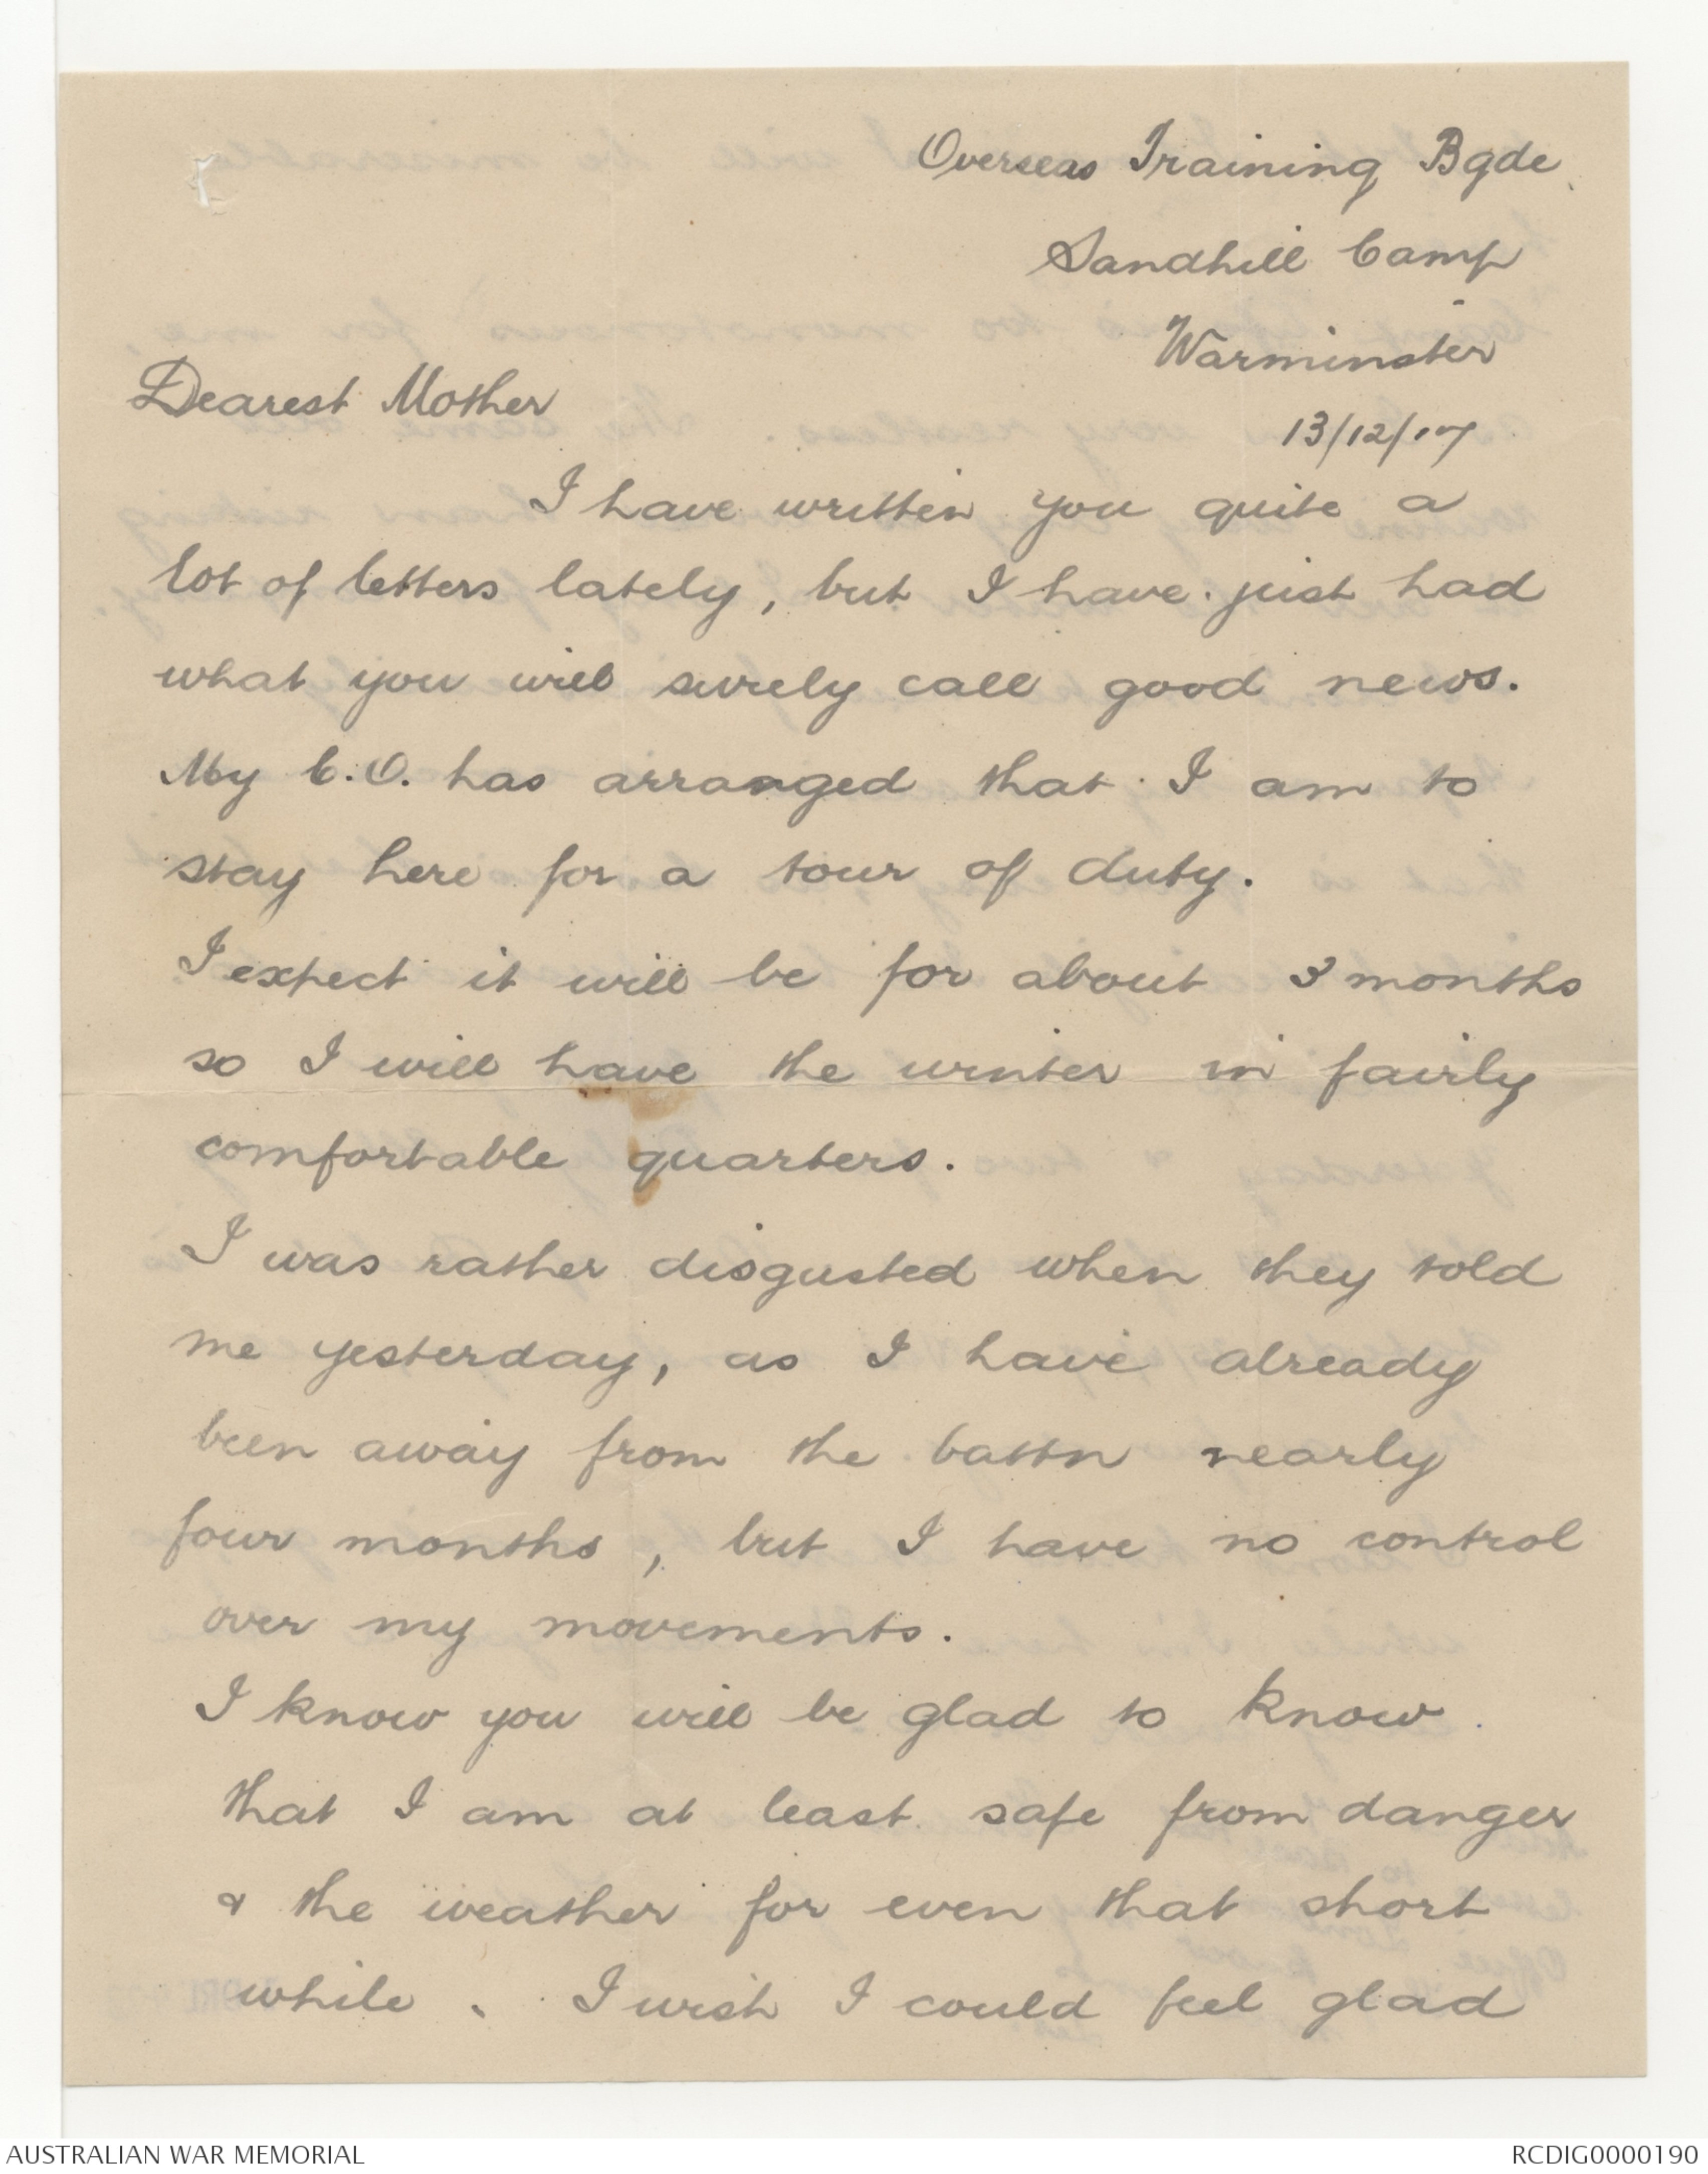 Overseas Training Bgde
Sandhill Camp
Warminster
Dearest Mother
13/12/17
I have written you quite a
lot of letters lately, but I have just had
what you will surely call good news.
My C.O. has arranged that I am to
stay here for a tour of duty.
I expect it will be for about 3 months
so I will have the winter in fairly
comfortable quarters.
I was rather disgusted when they told
me yesterday, as I have already
been away from the battn nearly
four months, but I have no control
over my movements.
I know you will be glad to know
that I am at least safe from danger
& the weather for even that short
while. I wish I could feel glad
AUSTRALIAN WAR MEMORIAL
RCDIG0000190